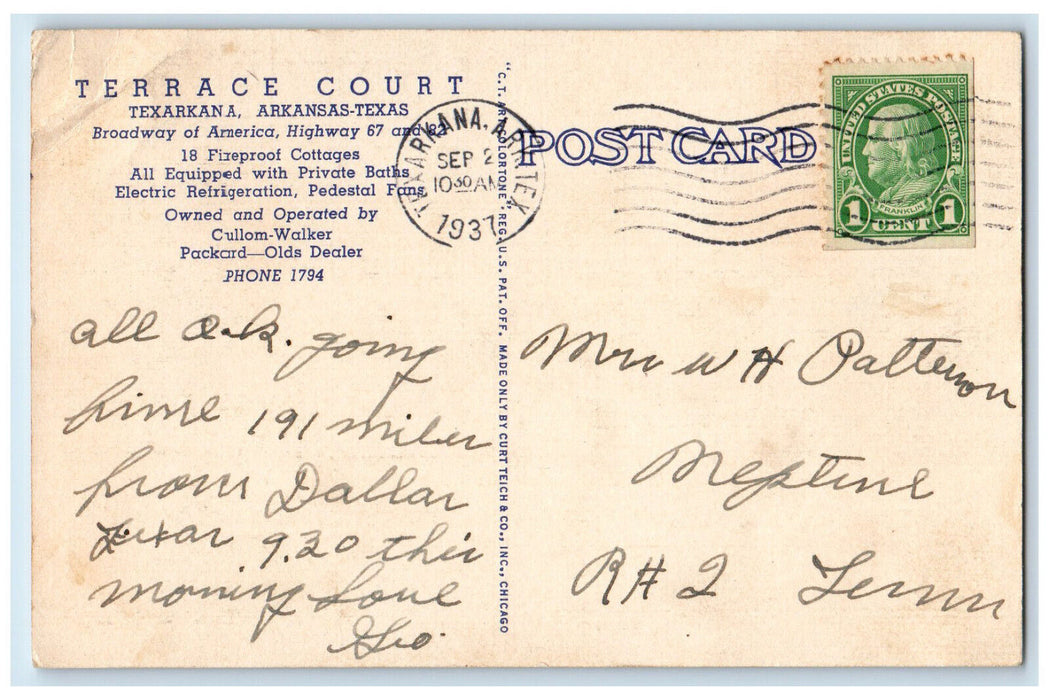 TERRACE COURT
TEXARKANA, ARKANSAS-TEXAS
Broadway of America, Highway 67 and 82
18 Fireproof Cottages
All Equipped with Private Baths
Electric Refrigeration, Pedestal Fans
Owned and Operated by
Cullom-Walker
Packard—Olds Dealer
PHONE 1794
all O.K. going
hime 191 miles
from Dallas
Texas 9.30 this
morning Love
Geo.
"C.T. ART-COLORTONE" REG. U.S. PAT. OFF. MADE ONLY BY CURT TEICH & CO., INC., CHICAGO
TEXARKANA, ARK.-TEX.
SEP 2
10 30 AM
1937
POST CARD
UNITED STATES POSTAGE
FRANKLIN
1 CENT 1
Mrs W H Patterson
Neptune
R#2 Tenn